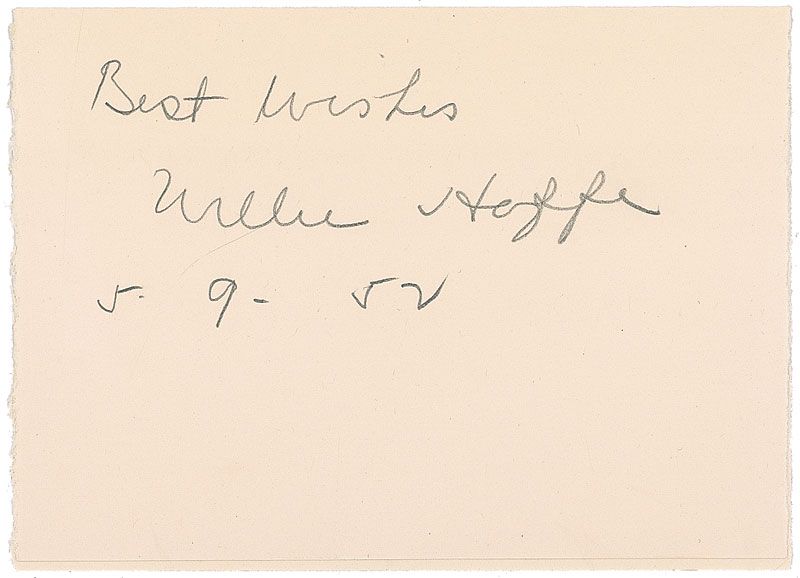 Best Wishes
Willie Hoppe
5. 9 - 52